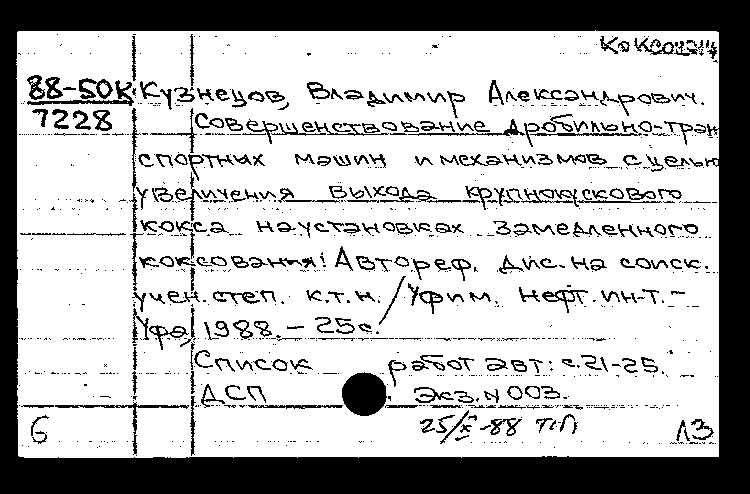 88-50К Кузнецов, Владимир Александрович.
7228 Совершенствование дробильно-тран
спортных машин и механизмов с целью
увеличения выхода крупнокускового
кокса на установках замедленного
коксования: Автореф. дис. на соиск.
учен. степ. к.т.н. / Уфим. нефт. ин-т. -
Уфа, 1988. - 25с.
Список работ авт: с.21-25.
ДСП Экз. N 003.
6 25/X-88 ЛЗ